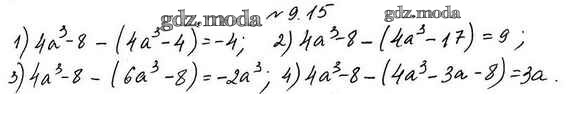 gdz.moda №9.15 gdz.moda
1) 4a³-8-(4a³-4)=-4; 2) 4a³-8-(4a³-17)=9;
3) 4a³-8-(6a³-8)=-2a³; 4) 4a³-8-(4a³-3a-8)=3a.